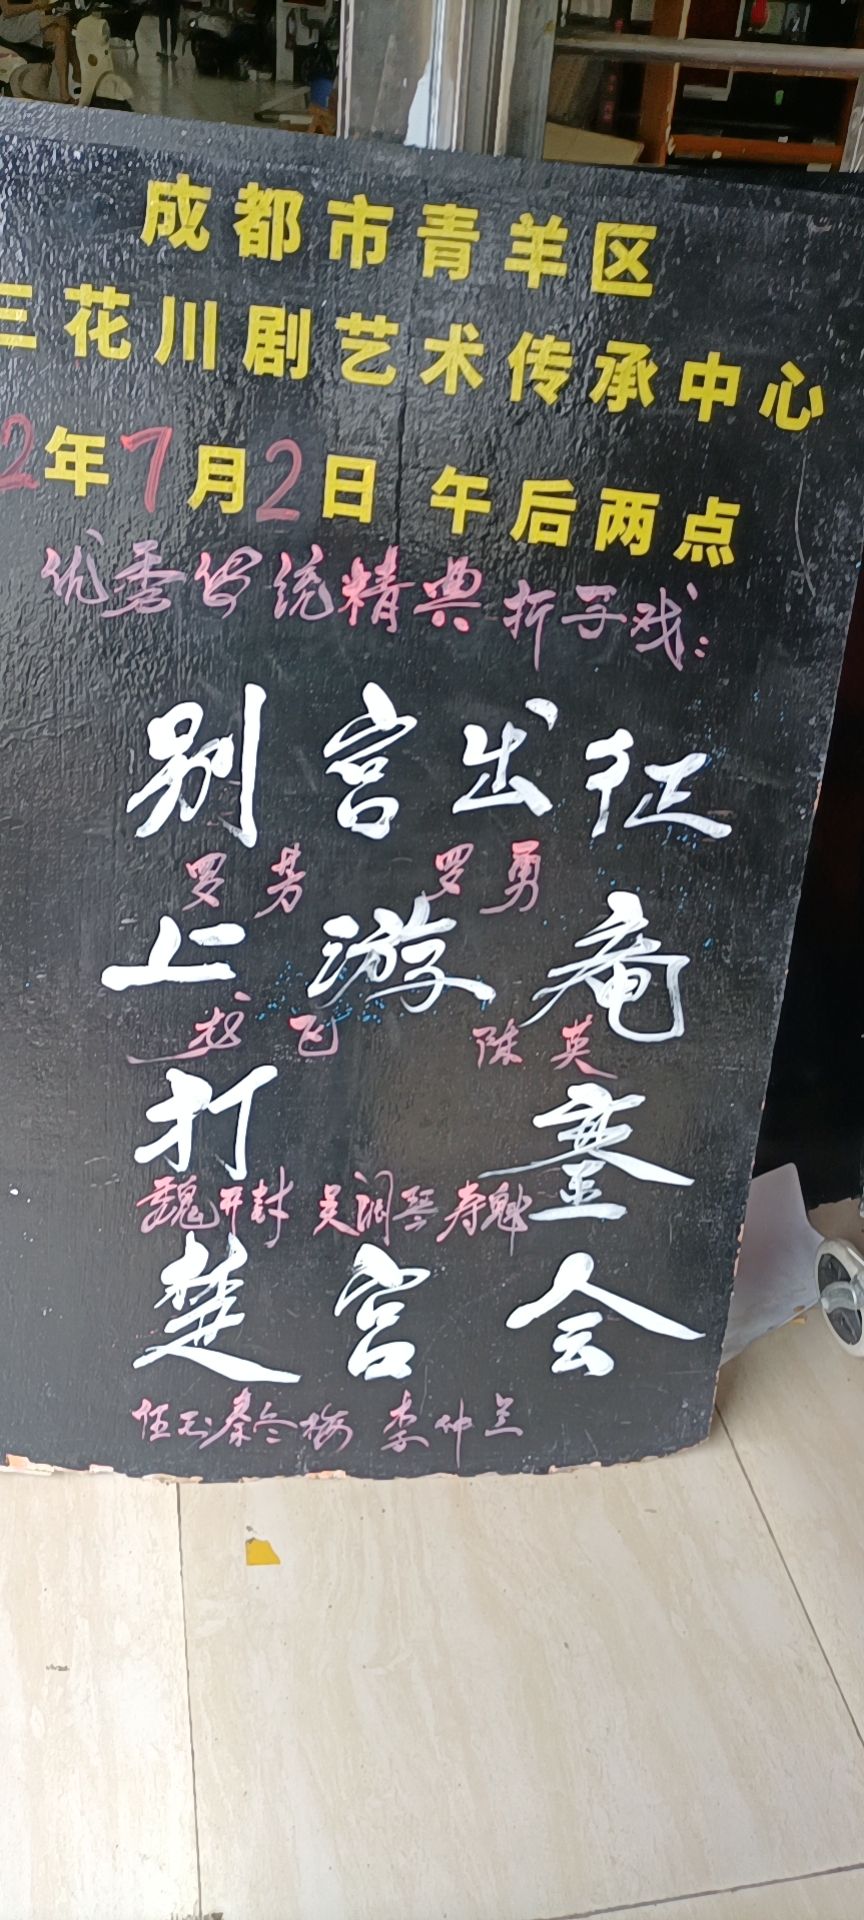 成都市青羊区
三花川剧艺术传承中心
2年7月2日 午后两点
优秀传统精典折子戏：
别宫出征
罗芳 罗勇
上游庵
龙飞 陈英
打銮
魏开封 吴润琴 寿魁
楚宫会
伍玉 秦冬梅 李仲兰